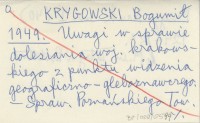 KRYGOWSKI Bogumił
1949. Uwagi w sprawie
dolesiania woj. krakows-
kiego z punktu widzenia
geograficzno-gleboznawczego
– Spraw. Poznańskiego Tow.